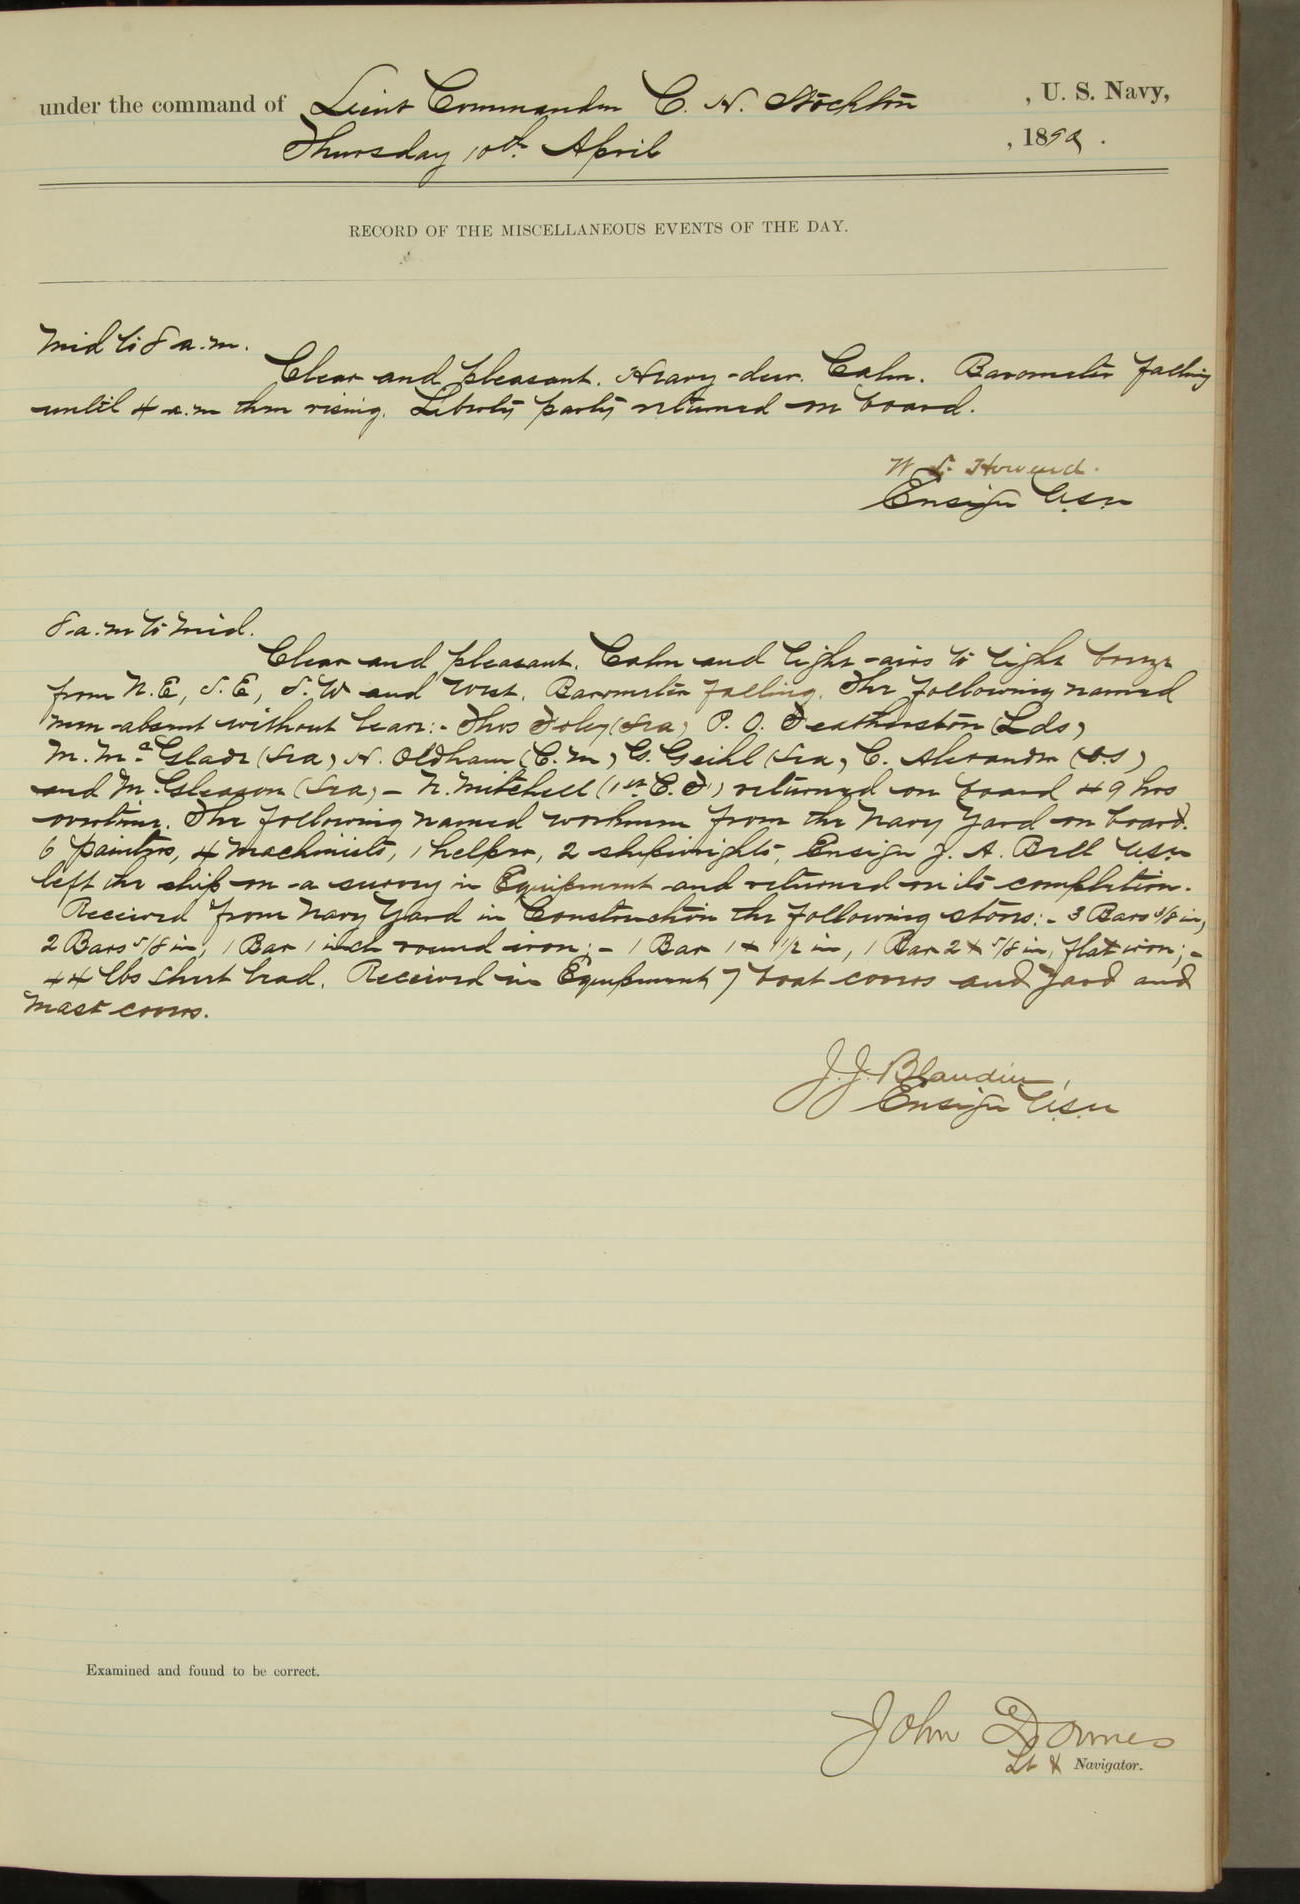 under the command of Lieut Commander C. H. Stockton , U. S. Navy,
Thursday 10th April , 1890 .
RECORD OF THE MISCELLANEOUS EVENTS OF THE DAY.
Mid to 8 a.m.
Clear and pleasant. Heavy dew. Calm. Barometer falling
until 4 a.m then rising. Liberty party returned on board.
W. L. Howard.
Ensign U.S.N
8 a.m to Mid.
Clear and pleasant. Calm and light airs to light breeze
from N.E, S.E, S.W and West. Barometer falling. The following named
men absent without leave:- Thos Foley (Sea) P. O. Featherston (Lds)
M. McGlade (Sea) H. Oldham (C.M) G. Geihl (Sea) C. Alexander (O.S)
and M. Gleason (Sea) - N. Mitchell (1st C.F) returned on board 49 hrs
overtime. The following named workmen from the Navy Yard on board.
6 painters, 4 machinists, 1 helper, 2 shipwrights, Ensign J. A. Bell U.S.N
left the ship on a survey in Equipment and returned on its completion.
Received from Navy Yard in Construction the following stores:- 3 Bars 3/8 in,
2 Bars 5/8 in, 1 Bar 1 inch round iron;- 1 Bar 1 x 1/2 in, 1 Bar 2 x 5/8 in, flat iron;-
44 lbs sheet lead. Received in Equipment 7 boat covers and yard and
mast covers.
J. J. Blandin,
Ensign U.S.N
Examined and found to be correct.
John Downes
Lt & Navigator.